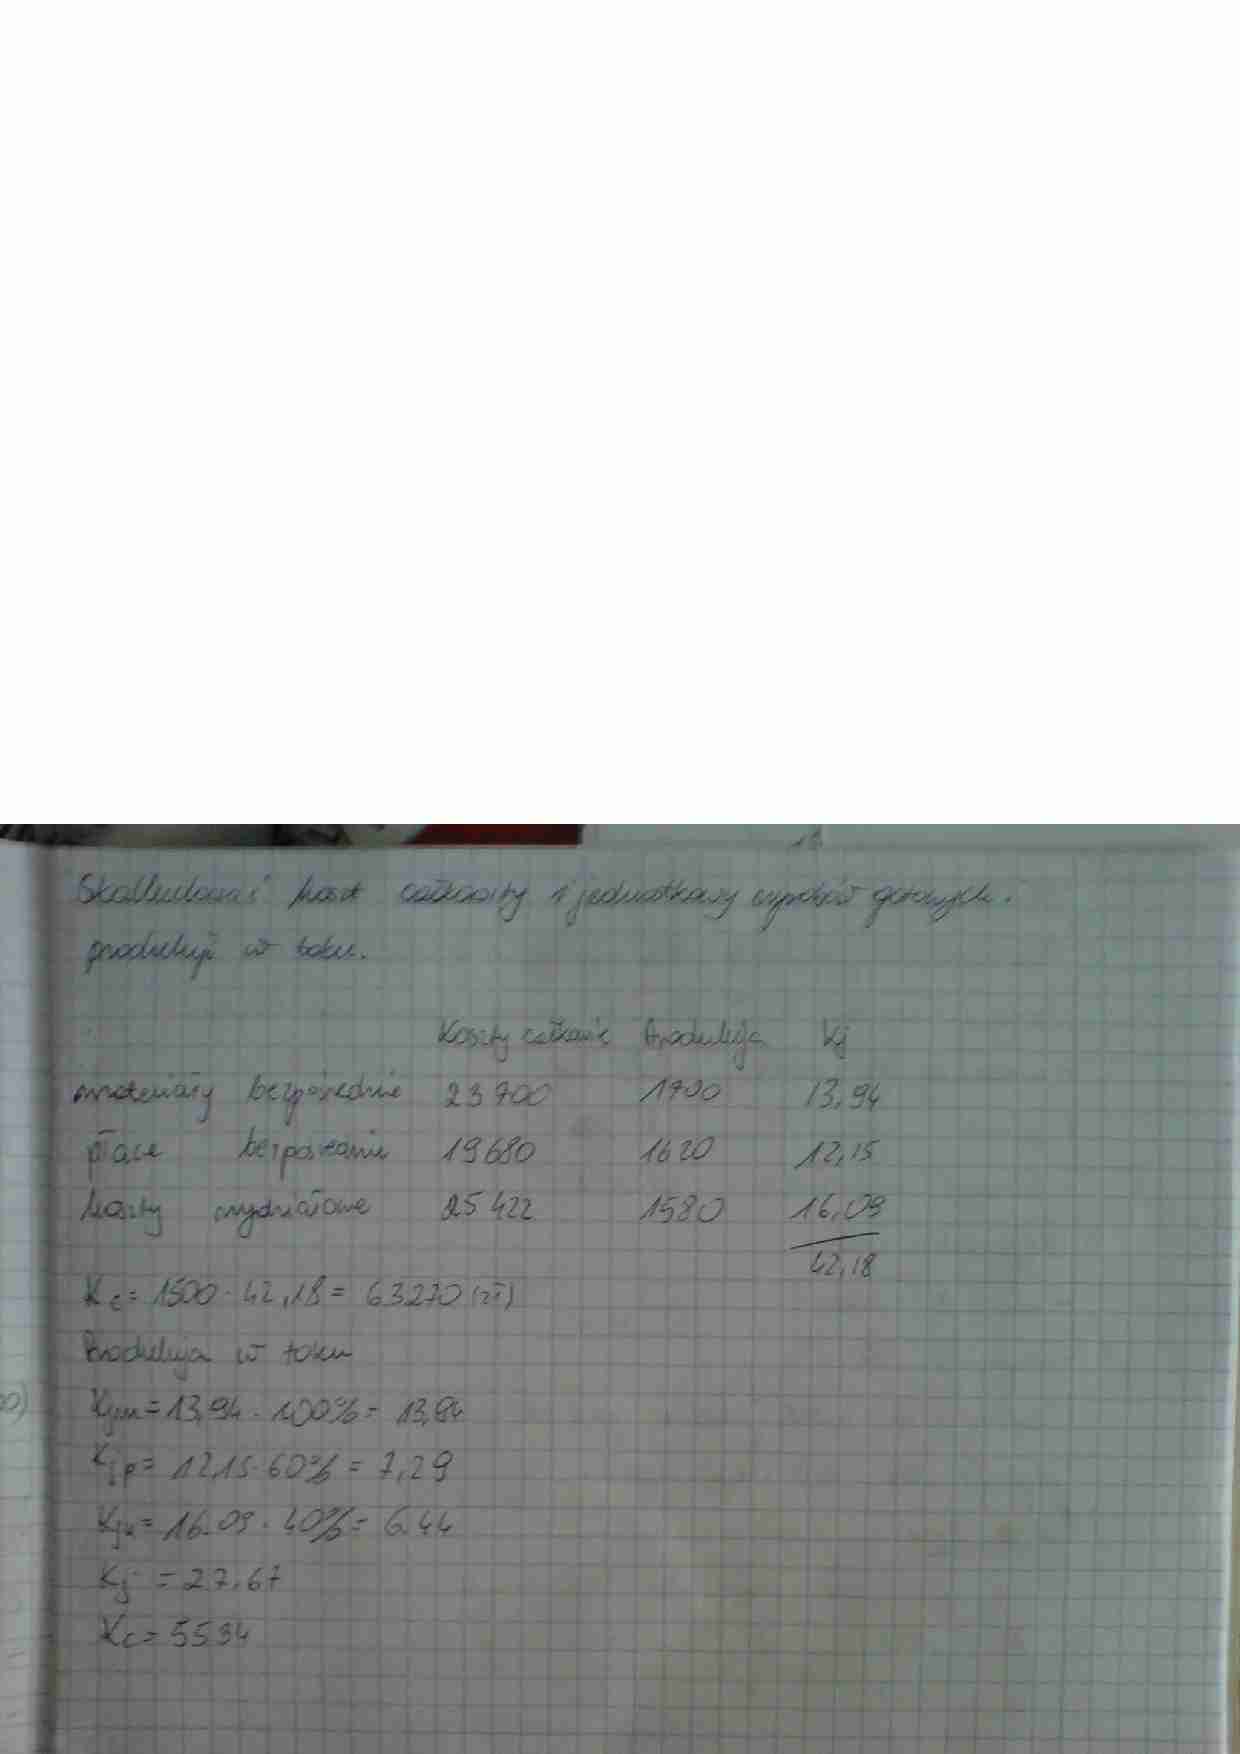 Skalkulować koszt całkowity i jednostkowy wyrobów gotowych.
produkcji w toku.
Koszty całkowite Produkcja Kj
materiały bezpośrednie 23700 1700 13,94
płace bezpośrednie 19680 1620 12,15
koszty wydziałowe 25422 1580 16,09
42,18
Kc = 1500 · 42,18 = 63270 (zł)
Produkcja w toku
Kjm = 13,94 · 100% = 13,94
Kjp = 12,15 · 60% = 7,29
Kjk = 16,09 · 40% = 6,44
Kj = 27,67
Kc = 5534